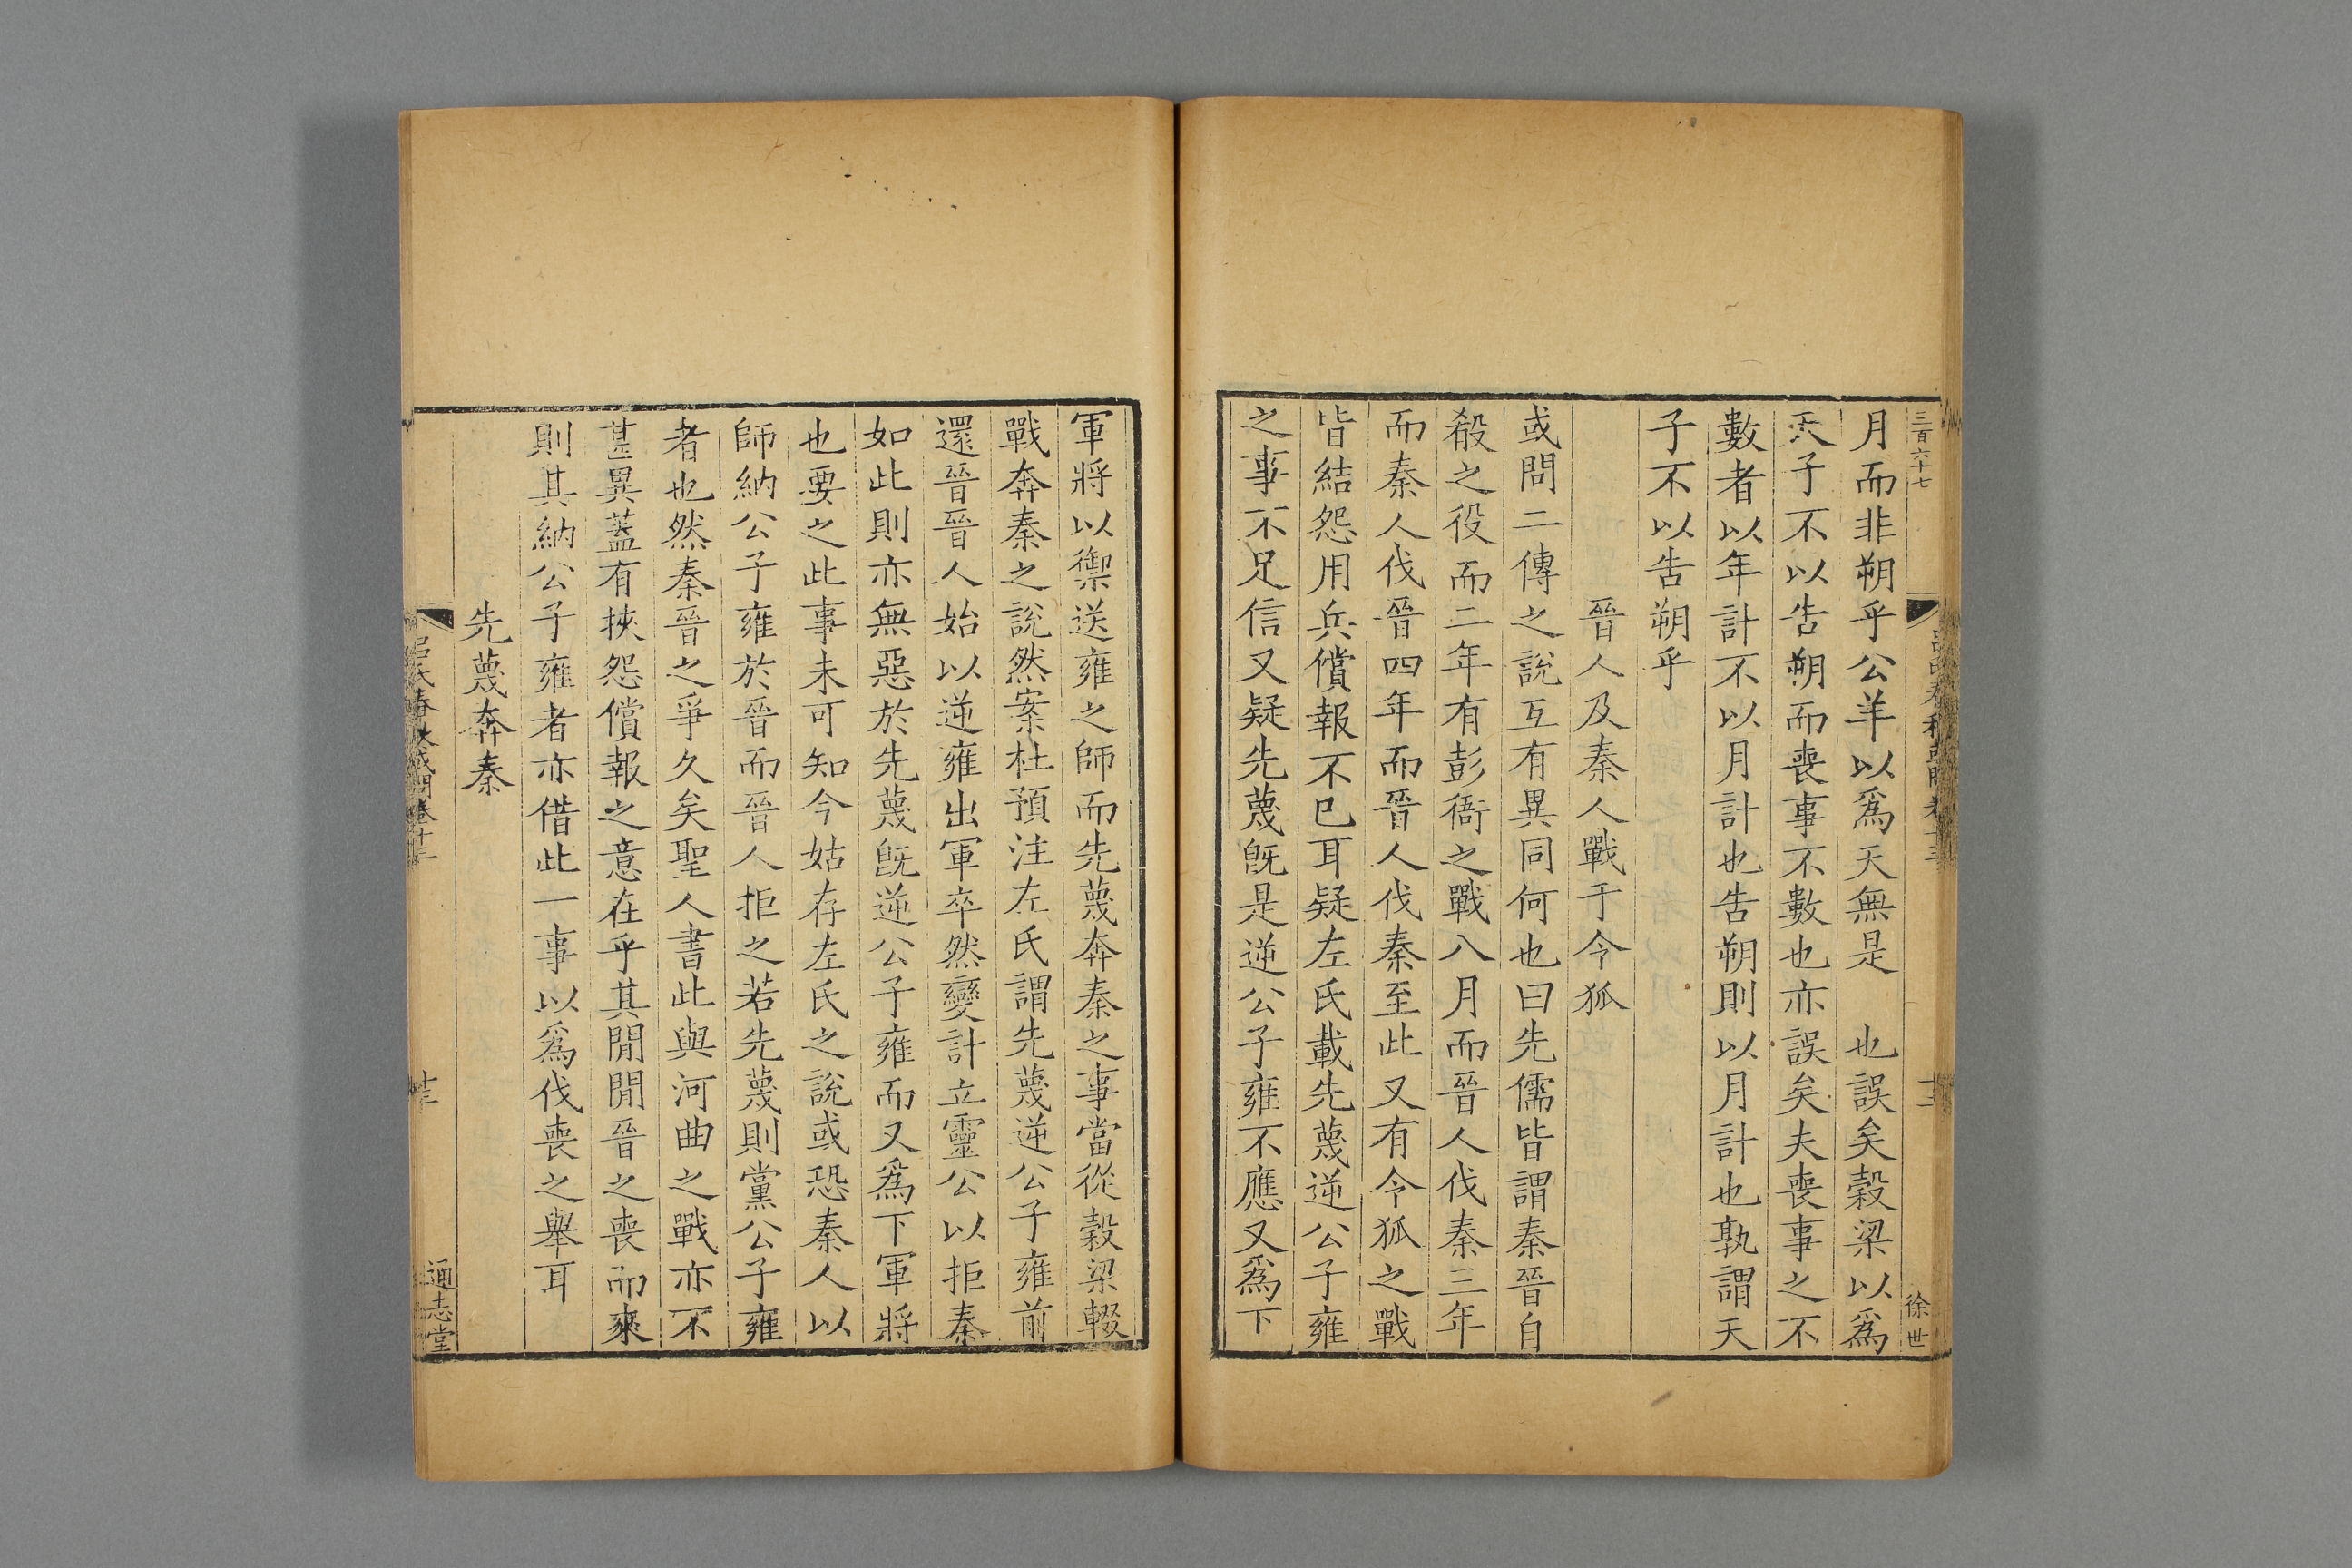 三百六十七
呂氏春秋或問卷十三
十二
徐世
月而非朔乎公羊以爲天無是　也誤矣穀梁以爲
天子不以告朔而喪事不數也亦誤矣夫喪事之不
數者以年計不以月計也告朔則以月計也孰謂天
子不以告朔乎
晉人及秦人戰于令狐
或問二傳之說互有異同何也曰先儒皆謂秦晉自
殽之役而二年有彭衙之戰八月而晉人伐秦三年
而秦人伐晉四年而晉人伐秦至此又有令狐之戰
皆結怨用兵償報不已耳疑左氏載先蔑逆公子雍
之事不足信又疑先蔑旣是逆公子雍不應又爲下
軍將以禦送雍之師而先蔑奔秦之事當從穀梁輟
戰奔秦之說然案杜預注左氏謂先蔑逆公子雍前
還晉晉人始以逆雍出軍卒然變計立靈公以拒秦
如此則亦無惡於先蔑旣逆公子雍而又爲下軍將
也要之此事未可知今姑存左氏之說或恐秦人以
師納公子雍於晉而晉人拒之若先蔑則黨公子雍
者也然秦晉之爭久矣聖人書此與河曲之戰亦不
甚異蓋有挾怨償報之意在乎其閒閒晉之喪而來
則其納公子雍者亦借此一事以爲伐喪之舉耳
先蔑奔秦
呂氏春秋或問卷十三
十三
通志堂